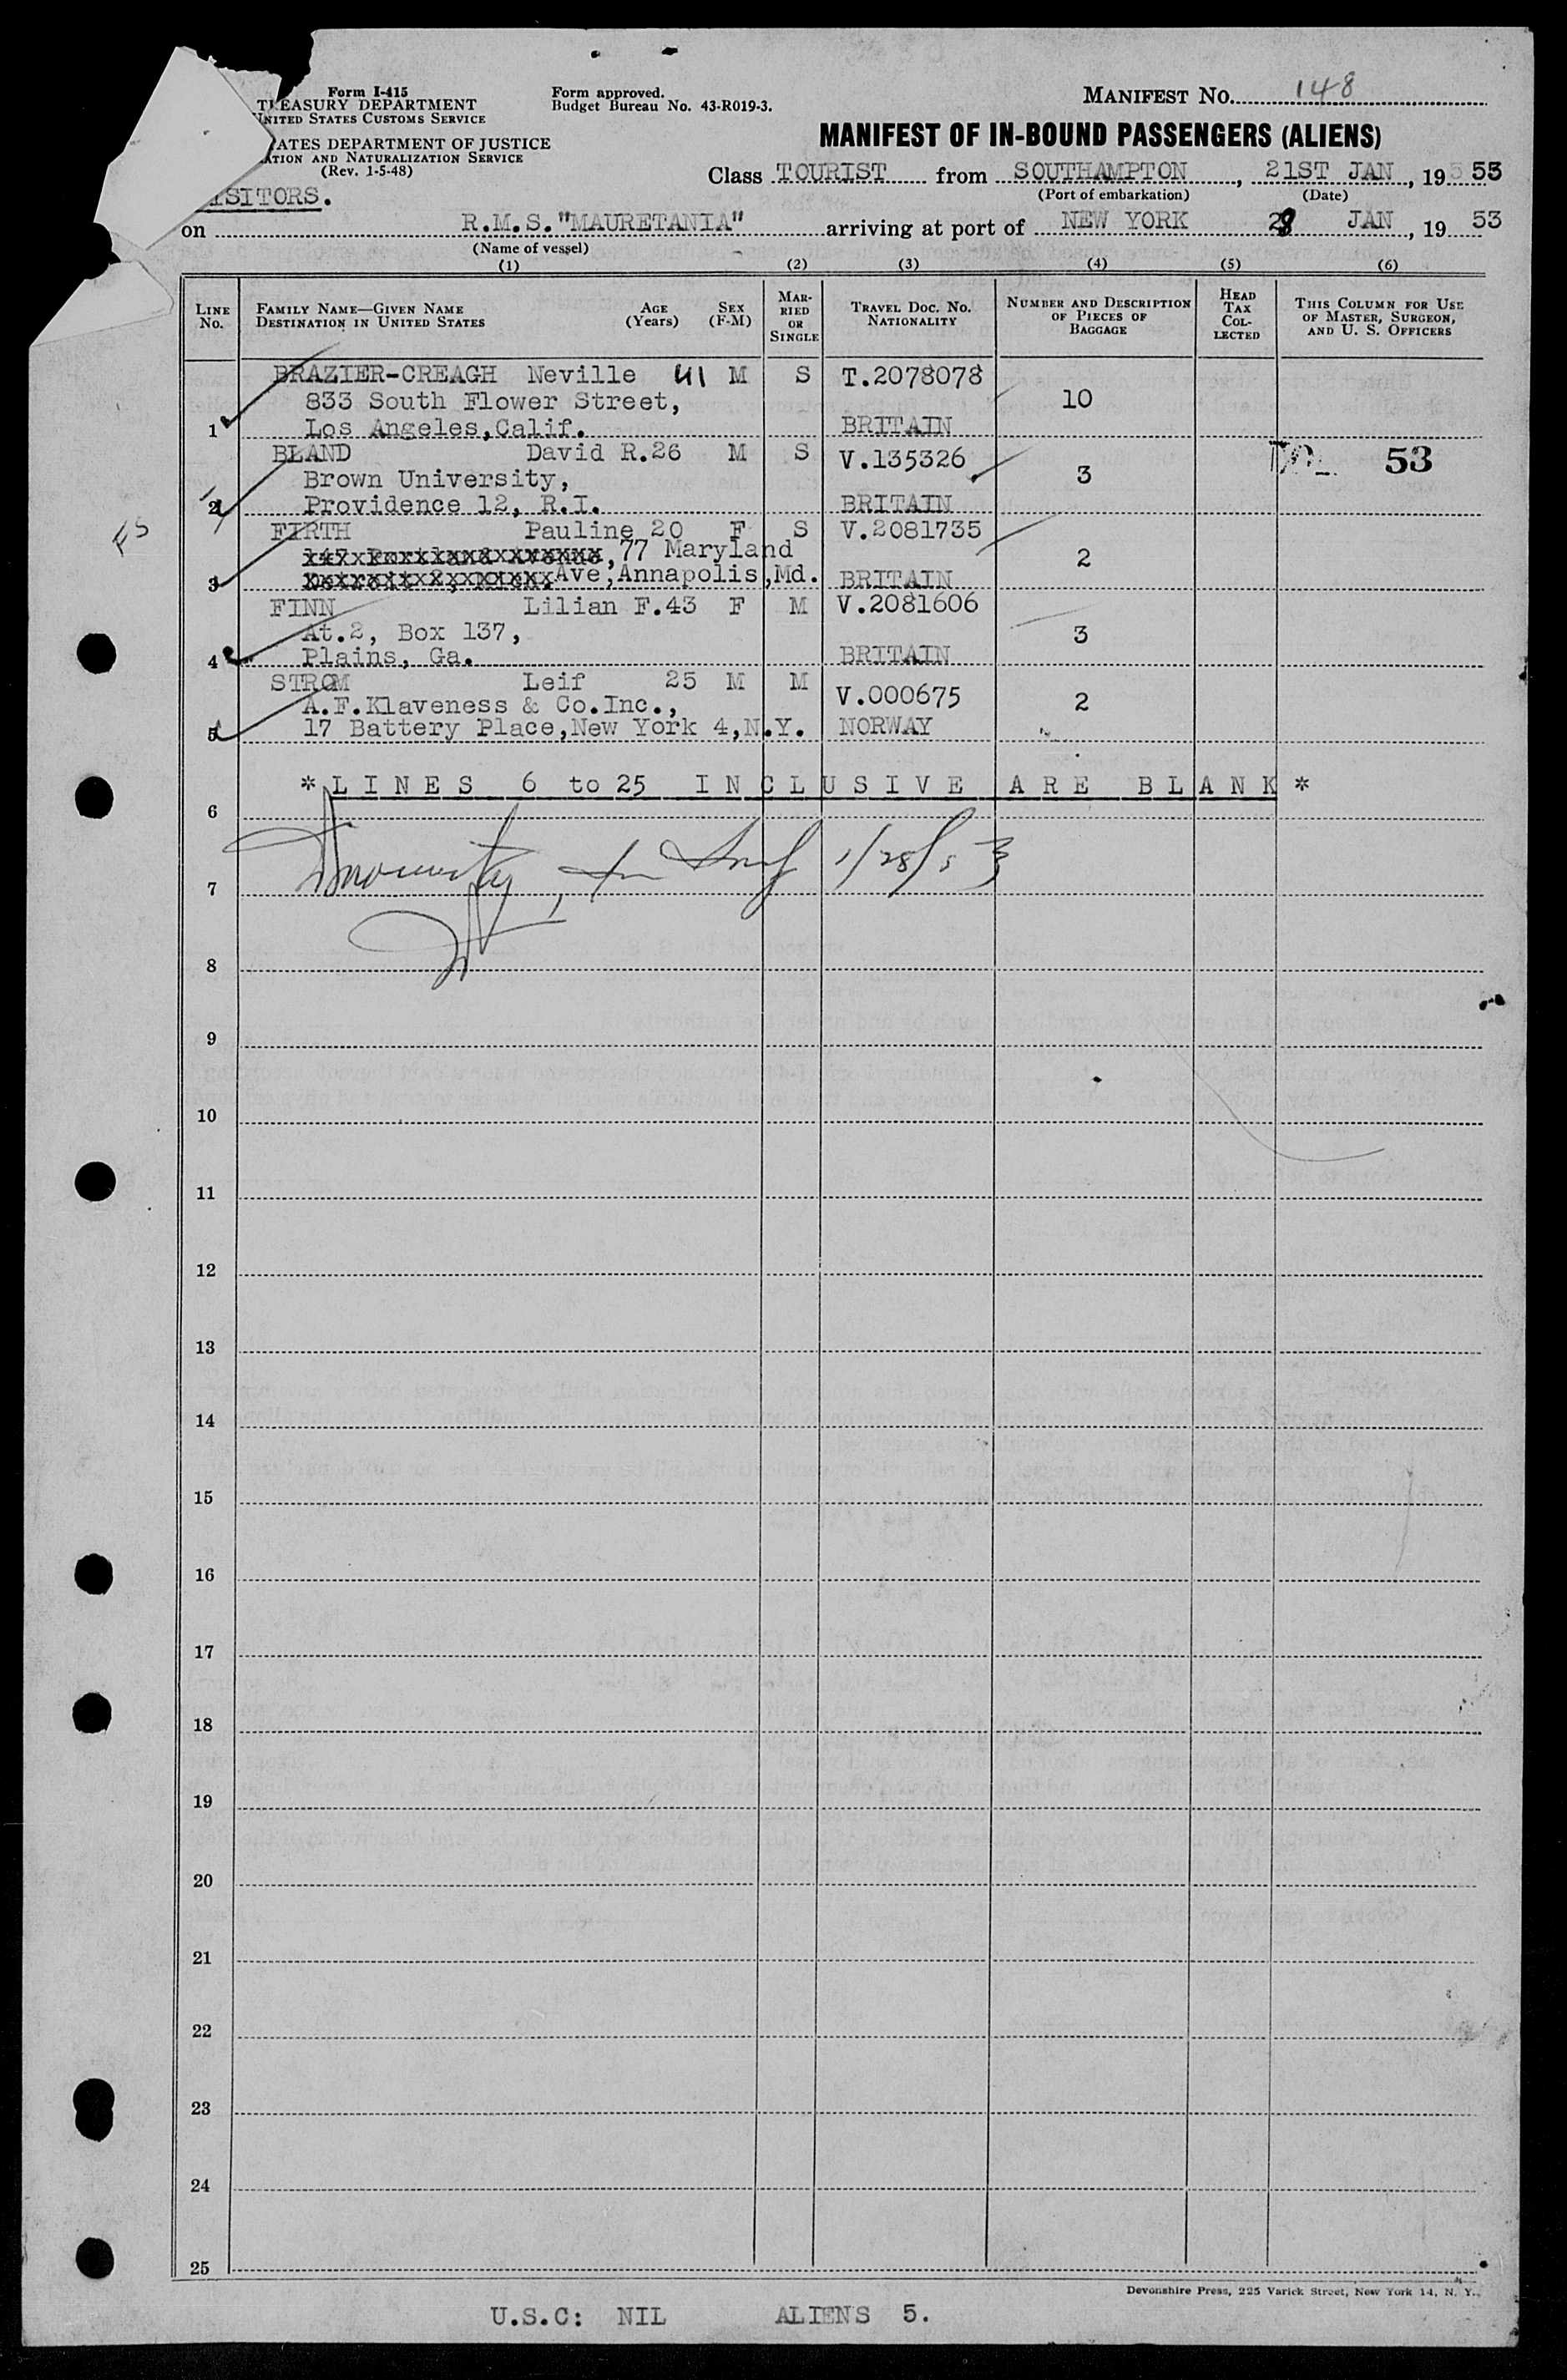 Form I-415
TREASURY DEPARTMENT
UNITED STATES CUSTOMS SERVICE
ATES DEPARTMENT OF JUSTICE
ATION AND NATURALIZATION SERVICE
(Rev. 1-5-48)
ISITORS.
Form approved.
Budget Bureau No. 43-R019-3.
MANIFEST NO. 148
MANIFEST OF IN-BOUND PASSENGERS (ALIENS)
Class TOURIST from SOUTHAMPTON, 21ST JAN, 19 53
(Port of embarkation) (Date)
on R.M.S."MAURETANIA" arriving at port of NEW YORK 28 JAN, 19 53
(Name of vessel)
(1) (2) (3) (4) (5) (6)
LINE No. FAMILY NAME—GIVEN NAME DESTINATION IN UNITED STATES AGE (Years) SEX (F-M) MARRIED OR SINGLE TRAVEL DOC. NO. NATIONALITY NUMBER AND DESCRIPTION OF PIECES OF BAGGAGE HEAD TAX COLLECTED THIS COLUMN FOR USE OF MASTER, SURGEON, AND U. S. OFFICERS
BRAZIER-CREAGH Neville 41 M S T.2078078
833 South Flower Street, 10
1 Los Angeles,Calif. BRITAIN
BLAND David R.26 M S V.135326 53
Brown University, 3
2 Providence 12, R.I. BRITAIN
FS
FIRTH Pauline 20 F S V.2081735
77 Maryland 2
3 Ave,Annapolis,Md. BRITAIN
FINN Lilian F.43 F M V.2081606
At.2, Box 137, 3
4 Plains, Ga. BRITAIN
STROM Leif 25 M M V.000675
A.F.Klaveness & Co.Inc., 2
5 17 Battery Place,New York 4,N.Y. NORWAY
* LINES 6 to 25 INCLUSIVE ARE BLANK *
6
1/28/53
7
8
9
10
11
12
13
14
15
16
17
18
19
20
21
22
23
24
25
Devonshire Press, 225 Varick Street, New York 14, N. Y.
U.S.C: NIL ALIENS 5.